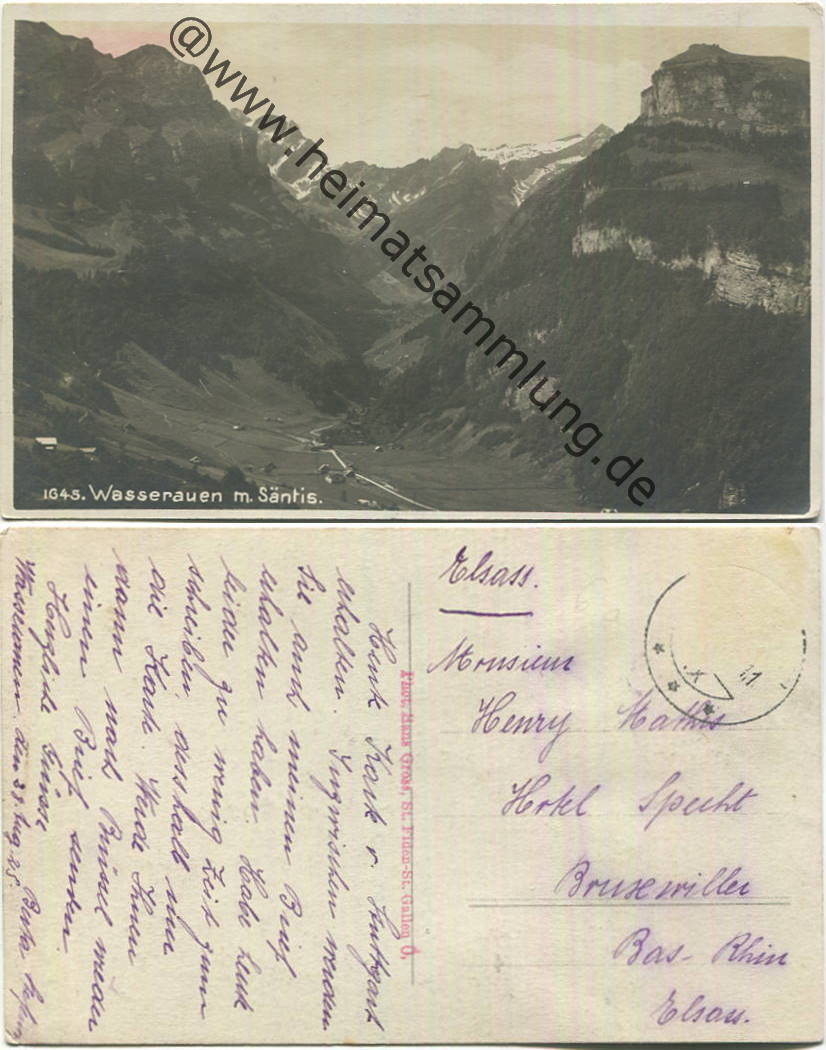 @www.heimatsammlung.de
1645. Wasserauen m. Säntis.
Heute Karte v. Stuttgart
erhalten. Inzwischen werden
Sie auch meinen Brief
erhalten haben. Habe heute
leider zu wenig Zeit zum
schreiben, desshalb eine
die Karte. Werde Ihnen
dann nach Brüssel wieder
einen Brief senden.
Herzliche Grüsse Berta
Wasserauen, den 28. Aug. 25.
Phot. Hans Gross, St. Fiden-St. Gallen O.
Elsass.
Monsieur
Henry Mathis
Hotel Specht
Bruxwiller
Bas-Rhin
Elsass.